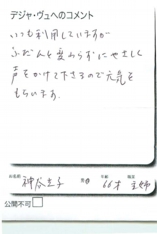 デジャ・ヴュへのコメント
いつも利用していますが
ふだんと変わらずにやさしく
声をかけて下さるので元気を
もらいます。
お名前 神谷 子 男・女 年齢 66才 職業 主婦
公開不可